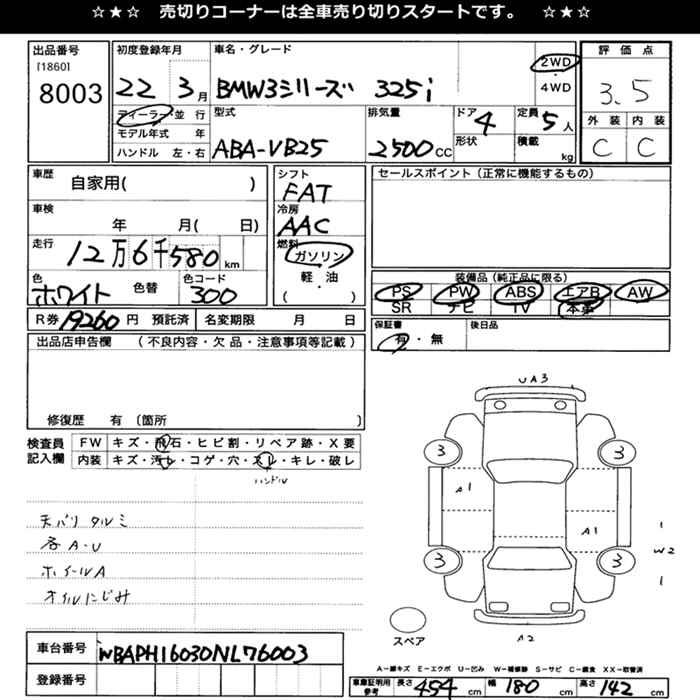 ☆★☆ 売切りコーナーは全車売り切りスタートです。 ☆★☆
出品番号
[1860]
8003
初度登録年月
22 3月
ディーラー・並行
モデル年式 年
ハンドル 左・右
車名・グレード
BMW3シリーズ 325i
2WD
・
4WD
型式
ABA-VB25
排気量
2500CC
ドア 4
形状
定員 5人
積載 kg
評価点
3.5
外装 内装
C C
車歴
自家用( )
車検
年 月( 日)
走行
12万6千580km
色
ホワイト
色替
色コード
300
シフト
FAT
冷房
AAC
燃料
ガソリン
・
軽・油
( )
セールスポイント(正常に機能するもの)
装備品(純品に限る)
PS PW ABS エアB AW
SR ナビ TV 本革
R券 19260円 預託済 名変期限 月 日
保証書
有・無
後日品
出品店申告欄 (不良内容・欠品・注意事項等記載)
修復歴 有(箇所 )
検査員
記入欄
FW キズ・飛石・ヒビ割・リペア跡・X要
内装 キズ・汚レ・コゲ・穴・スレ・キレ・破レ
ハンドル
天バリタルミ
各A・U
ホイールA
オイルにじみ
UA3
3 3
A1
A1
3 3
W2
A2
スペア
車台番号 WBAPH16030NL76003
登録番号
A−線キズ E−エクボ U−凹み W−補修跡 S−サビ C−腐食 XX−取替済
車庫証明用
参考
長さ 454 cm 幅 180 cm 高さ 142 cm